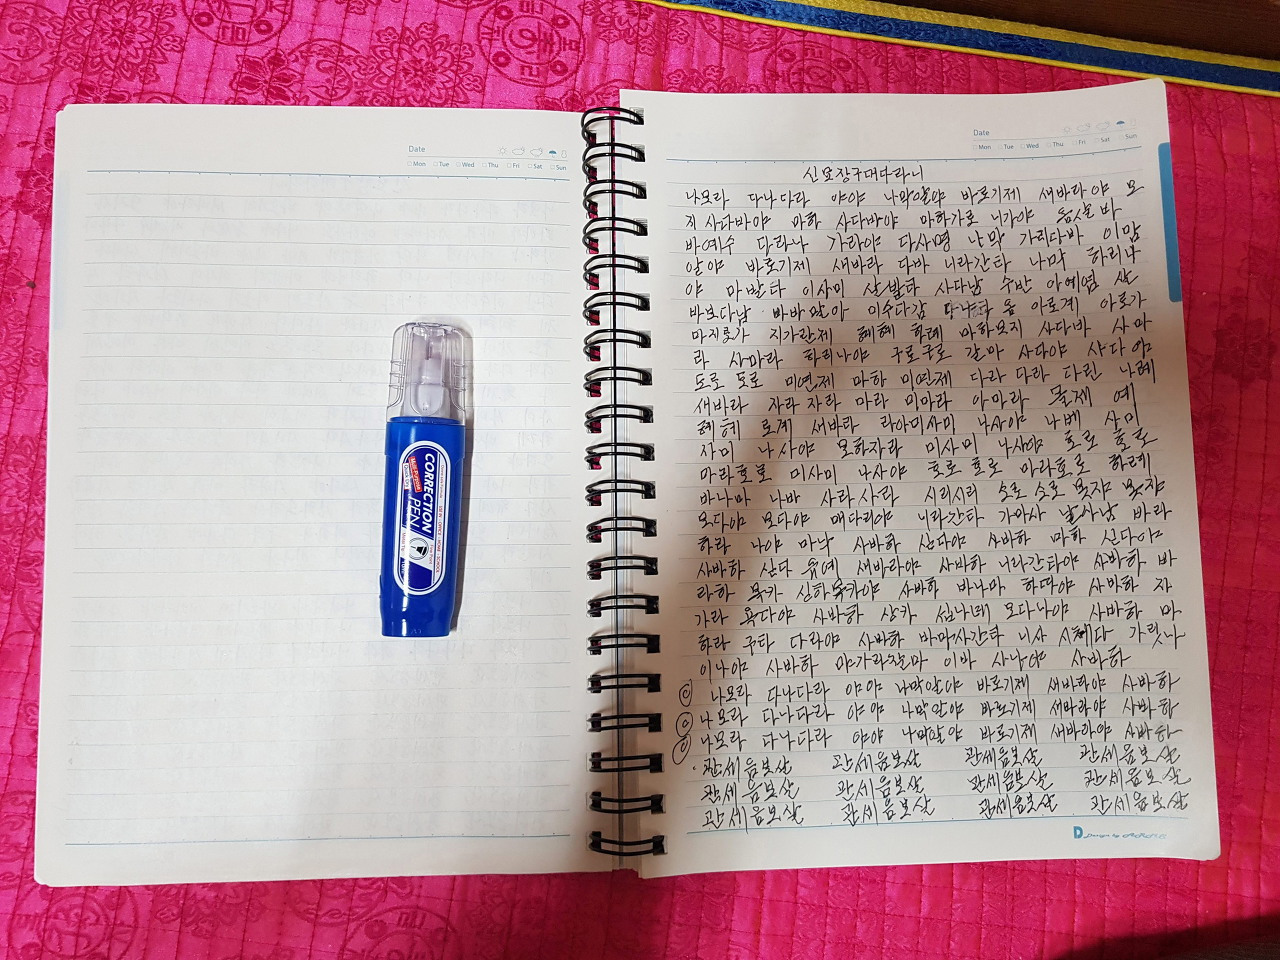 Date
Mon Tue Wed Thu Fri Sat Sun
CORRECTION
PEN
Date
Mon Tue Wed Thu Fri Sat Sun
신묘장구대다라니
나모라 다나다라 야야 나막알야 바로기제 새바라야 모
지 사다바야 마하 사다바야 마하가로 니가야 옴 살 바
바예수 다라나 가라야 다사명 나막 가리다바 이맘
알야 바로기제 새바라 다바 니라간타 나막 하리나
야 마발타 이사미 살발타 사다남 수반 아예염 살
바보다남 바바말아 미수다감 다냐타 옴 아로계 아로가
마지로가 지가란제 혜혜 하례 마하모지 사다바 사마
라 사마라 하리나야 구로구로 갈마 사다야 사다야
도로 도로 미연제 마하 미연제 다라 다라 다린 나례
새바라 자라 자라 마라 미마라 아마라 몰제 예
혜혜 로계 새바라 라아미사미 나사야 나베 사미
사미 나사야 모하자라 미사미 나사야 호로 호로
마라호로 미사미 나사야 호로 호로 마라호로 하례
바나마 나바 사라사라 시리시리 소로 소로 못쟈 못쟈
모다야 모다야 매다리야 니라간타 가마사 날사남 바라
하라 나야 마낙 사바하 싣다야 사바하 마하 싣다야
사바하 싣다 유예 새바라야 사바하 니라간타야 사바하 바
라하 목카 싱하목카야 사바하 바나마 하따야 사바하 자
가라 욕다야 사바하 상카 섭나네 모다나야 사바하 마
하라 구타 다라야 사바하 바마사간타 니사 시체다 가릿나
이나야 사바하 먀가라잘마 이바 사나야 사바하
나모라 다나다라 야야 나막알야 바로기제 새바라야 사바하
나모라 다나다라 야야 나막알야 바로기제 새바라야 사바하
나모라 다나다라 야야 나막알야 바로기제 새바라야 사바하
관세음보살 관세음보살 관세음보살 관세음보살
관세음보살 관세음보살 관세음보살 관세음보살
관세음보살 관세음보살 관세음보살 관세음보살